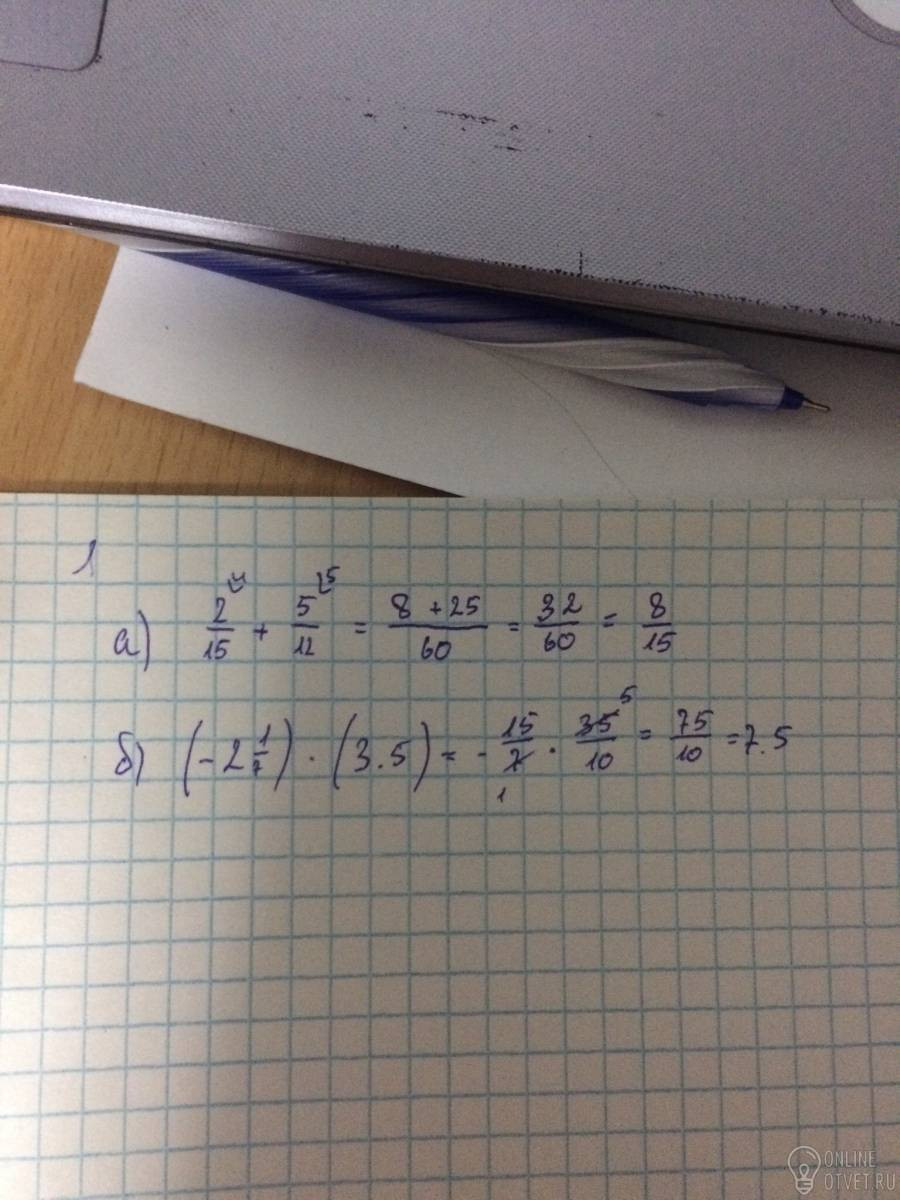 1
а) 2/15 + 5/12 = 8 + 25/60 = 32/60 = 8/15
б) (-2 1/7) · (3.5) = - 15/7 · 35/10 = 75/10 = 7.5
5
5
1
ONLINE
OTVET.RU